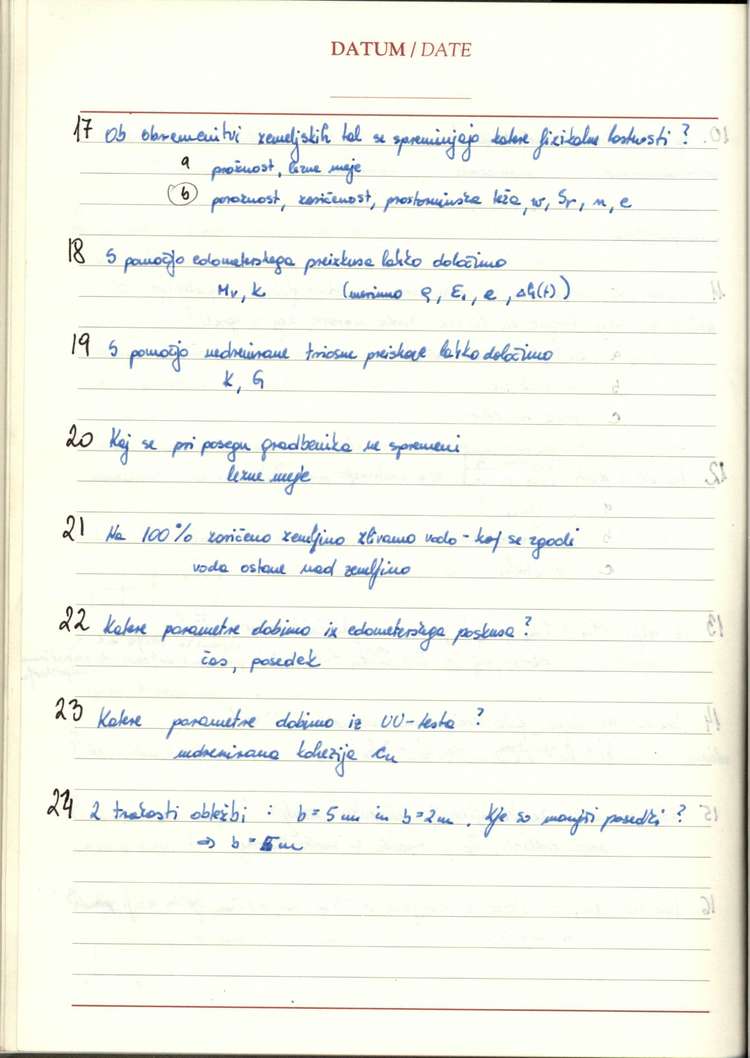 DATUM / DATE
17 Ob obremenitvi zemeljskih tal se spreminjajo katere fizikalne lastnosti ?
a prožnost, lezne meje
b poroznost, zasičenost, prostorninska teža, w, Sr, n, e
18 S pomočjo edometerskega preizkusa lahko določimo
Mv, k (merimo q, ε₁, e, Δh(t))
19 S pomočjo nedrenirane triosne preiskave lahko določimo
K, G
20 Kaj se pri posegu gradbenika ne spremeni
lezne meje
21 Na 100% zasičeno zemljino zlivamo vodo - kaj se zgodi
voda ostane nad zemljino
22 Katere parametre dobimo iz edometerskega poskusa ?
čas, posedek
23 Katere parametre dobimo iz UU-testa ?
nedrenirana kohezija cu
24 2 trakasti obtežbi : b = 5 m in b = 2 m. Kje so manjši posedki ?
⇒ b = m